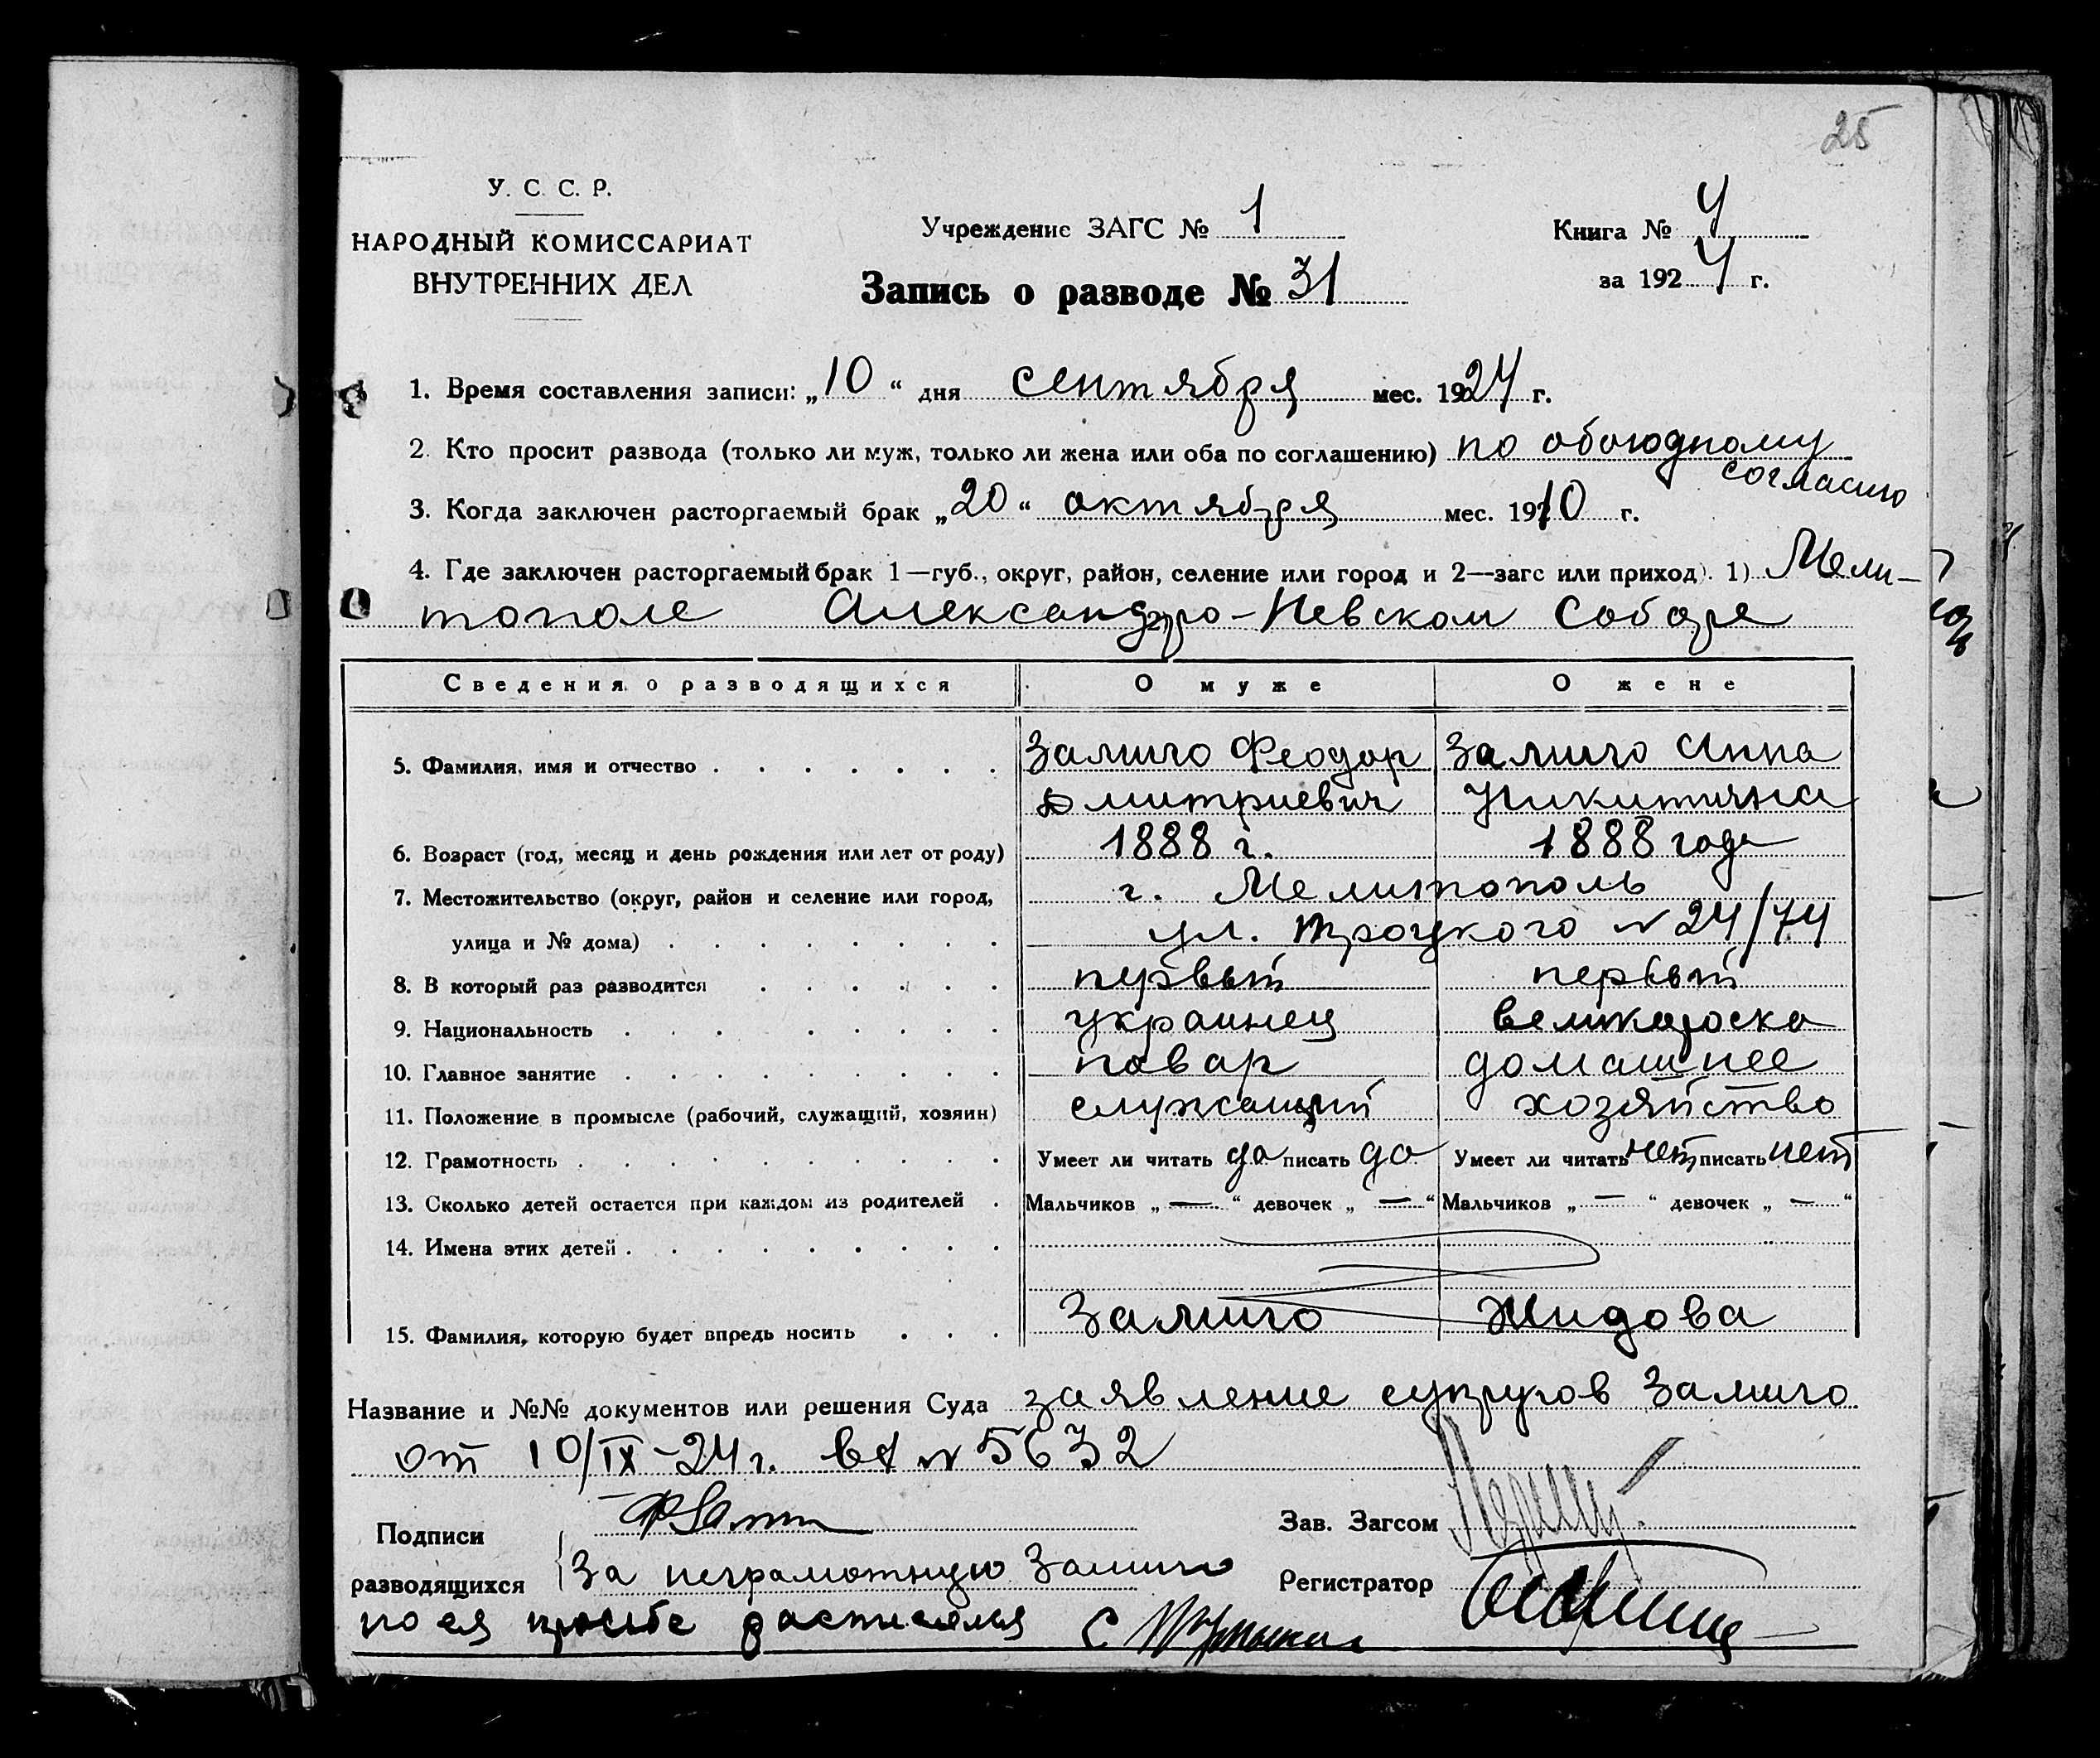 25
У. С. С. Р.
НАРОДНЫЙ КОМИССАРИАТ
ВНУТРЕННИХ ДЕЛ
Учреждение ЗАГС № 1
Запись о разводе № 31
Книга № 4
за 1924 г.
1. Время составления записи: „10“ дня сентября мес. 1924 г.
2. Кто просит развода (только ли муж, только ли жена или оба по соглашению) по обоюдному
согласию
3. Когда заключен расторгаемый брак „20“ октября мес. 1910 г.
4. Где заключен расторгаемый брак 1—губ., округ, район, селение или город и 2—загс или приход). 1) Мели-
тополе 2) Александро-Невском Соборе
Сведения о разводящихся О муже О жене
5. Фамилия, имя и отчество Замиго Феодор Замиго Анна
Дмитриевич Никитична
6. Возраст (год, месяц и день рождения или лет от роду) 1888 г. 1888 года
7. Местожительство (округ, район и селение или город, г. Мелитополь
улица и № дома) ул. Троцкого № 24/74
8. В который раз разводится первый первый
9. Национальность украинец великороска
10. Главное занятие повар домашнее
11. Положение в промысле (рабочий, служащий, хозяин) служащий хозяйство
12. Грамотность Умеет ли читать да писать да Умеет ли читать нет писать нет
13. Сколько детей остается при каждом из родителей Мальчиков „—“ девочек „—“ Мальчиков „—“ девочек „—“
14. Имена этих детей
15. Фамилия, которую будет впредь носить Замиго Жидова
Название и №№ документов или решения Суда заявление супругов Замиго
от 10/IX-24 г. вх № 5632
Подписи
разводящихся
За неграмотную Замиго
по ея просьбе расписался С
Зав. Загсом
Регистратор